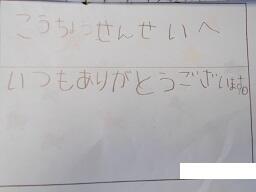 こうちょうせんせいへ
いつもありがとうございます。